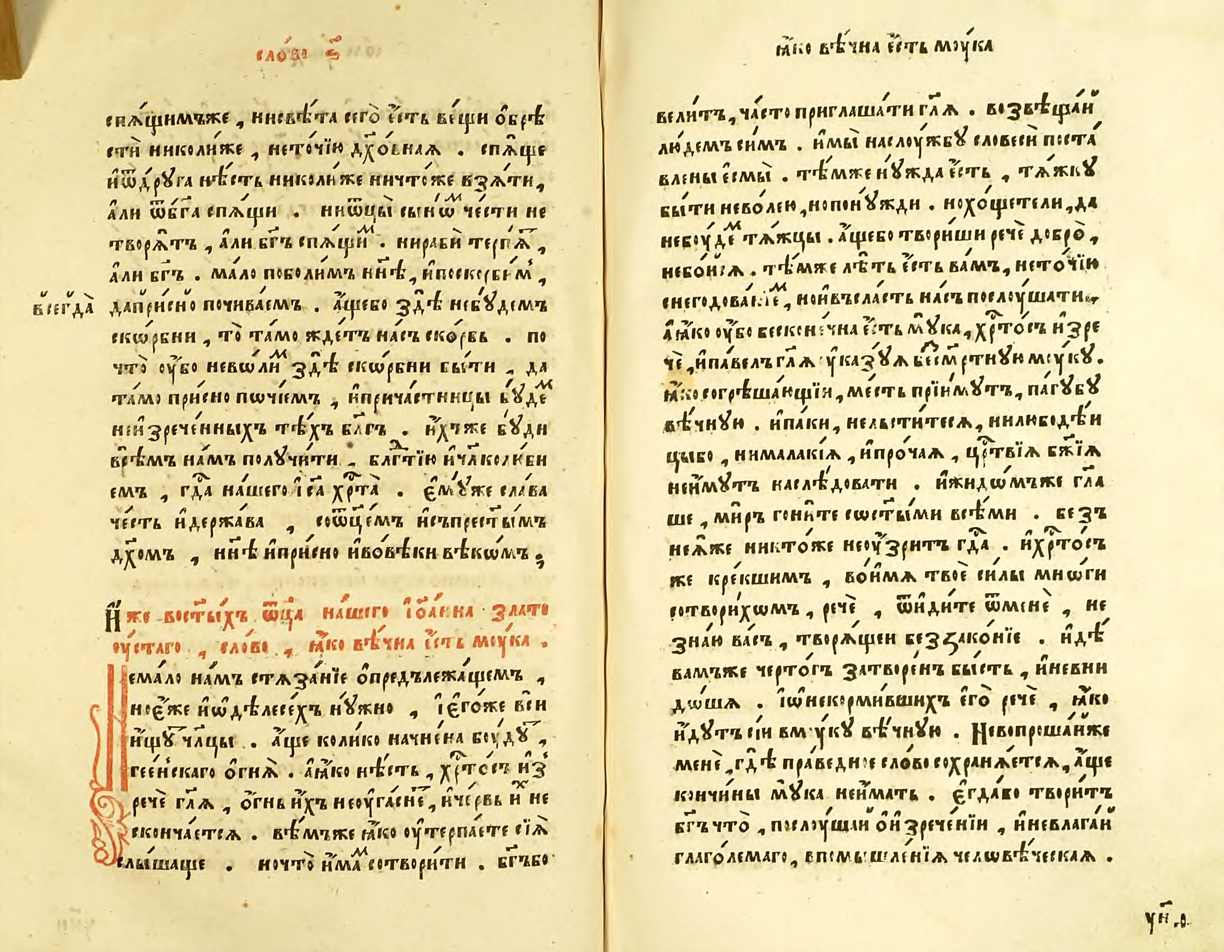 сло́во
спѧ́щимъже , нисвѣ́та сего̀ є҆́сть ве́щи ѡ҆брѣ
сти̂ николиже , неточїю дх҃о́внаѧ . спѧ́ще
и҆ѿдрꙋга нѣ́сть николи́же ничто́же взѧ́ти ,
а҆́ли ѿбг҃а спѧ́щи . ниѿцы̀ сынѡ́м че́сти не
творѧ́тъ , а҆́ли бг҃ъ спѧ́щим . нираби̂
а҆́ли бг҃ъ . ма́ло поболи́мъ нн҃ѣ , и҆поскорби́м ,
всегда̀
дапри́сно почива́емъ . а҆́щебо здѣ̀ небꙋ́демъ
скѡ́рбни , то̀ та́мо жде́тъ на́съ ско́рбь . по
что̀ оу҆́бо невѡ́лим здѣ̀ скѡ́рбни бы́ти , да
та́мо при́сно почі́емъ , и҆прича́стницы бꙋ́дем
неи҆зрече́нныхъ тѣ́хъ бл҃гъ . и҆́хъже бꙋ́ди
всѣ́мъ на́мъ получи́ти , блг҃тїю и҆чл҃колю́би
емъ , гд҃а на́шего і҆с҃а хр҃та̀ . є҆мꙋ́же сла́ва
че́сть и҆держа́ва , соѿц҃е́мъ и҆съпрест҃ы́мъ
дх҃омъ , нн҃ѣ и҆при́сно и҆вовѣ́ки вѣкѡ́мъ ;
И҆́же вост҃ы́хъ ѿц҃а на́шего і҆ѡа́нна злато
оу҆́стаго , сло́во , ꙗ҆́ко вѣ́чна є҆́сть моу́ка .
Нема́ло на́мъ стѧза́нїе ѡ҆предълежа́щемъ ,
ноє҆́же и҆ѡ҆дѣлесе́хъ нꙋ́жно , і҆є҆го́же вси
и҆́щꙋт чл҃цы . а҆́ще коли́ко начне́на боу́дꙋт ,
гее́нскаго ѻ҆гнѧ̀ . аꙗ҆́ко нѣ́сть , хр҃то́съ и҆з
речѐ гл҃ѧ , ѻ҆́гнь и҆́хъ неоуга́снет , и҆че́рвь и҆́х не
сконча́етсѧ . вѣ́мъже ꙗ҆́ко оу҆терпа́ете сїѧ̀
слы́шаще . ночто̀ и҆́мам сотвори́ти . бг҃ъбо
ꙗ҆́ко вѣ́чна є҆́сть моу́ка
вели́тъ , ча́сто приглаша́ти гл҃ѧ . возвѣща́й
лю́демъ си́мъ . и҆мы̀ наслоу́жбꙋ словесѝ поста́
влены є҆смы̀ . тѣ́мже нꙋ́жда є҆́сть , тѧ́жкꙋ
бы́ти нево́лею , нопонꙋ́жди . нохо́щетели , да
небоу́дем тѧ́жцы . а҆́щебо твори́ши речѐ добро̀ ,
небо́йсѧ . тѣ́мже лѣ́ть є҆́сть ва́мъ , нето́чїю
снегодова́нїем , ноивъсла́сть на́съ послоу́шати .
аꙗ҆́ко оу҆́бо безконе́чна є҆́сть мꙋ́ка , хр҃то́съ и҆зре
чѐ , и҆па́велъ гл҃ѧ оу҆ка́зꙋѧ бесме́ртнꙋю моу́кꙋ .
ꙗ҆́ко согрѣша́ющїи , ме́сть прїи́мутъ , па́губꙋ
вѣ́чнꙋю . и҆па́ки , нельсти́тесѧ , нилюбодѣ́и
цыбо , нимала́кїѧ , и҆про́чаѧ , цр҃твїѧ бж҃їѧ
неи҆́мутъ наслѣ́довати . и҆жидѡ́мъже гл҃а
ше , ми́ръ гони́те сост҃ы́ми всѣ́ми . безъ
неѧ́же никто́же неоу́зритъ гд҃а . и҆хр҃то́съ
же кре́кшимъ , вои҆́мѧ твоѐ си́лы мнѡ́ги
сотвори́хѡмъ , речѐ , ѿиди́те ѿменѐ , не
зна́ю ва́съ , творѧ́щеи беззако́нїе . и҆дѣ́
вамъже черто́гъ затворе́нъ бы́сть , и҆невни
до́шѧ . і҆ѡнекорми́вшихъ є҆го̀ речѐ , ꙗ҆́ко
и҆дꙋ́тъ сїи вмꙋ́кꙋ вѣ́чнꙋю . Невопроша́йже
менѐ , гдѣ̀ пра́ведное сло́во сохранѧ́етсѧ , а҆́ще
кончи́ны мꙋ́ка неи҆́мать . є҆гда́бо твори́тъ
бг҃ъ что̀ , послоу́шаи ѻ҆и҆зрече́нїи , и҆невлага́й
глаго́лемаго , впомышле́нїѧ человѣ́ческаѧ .